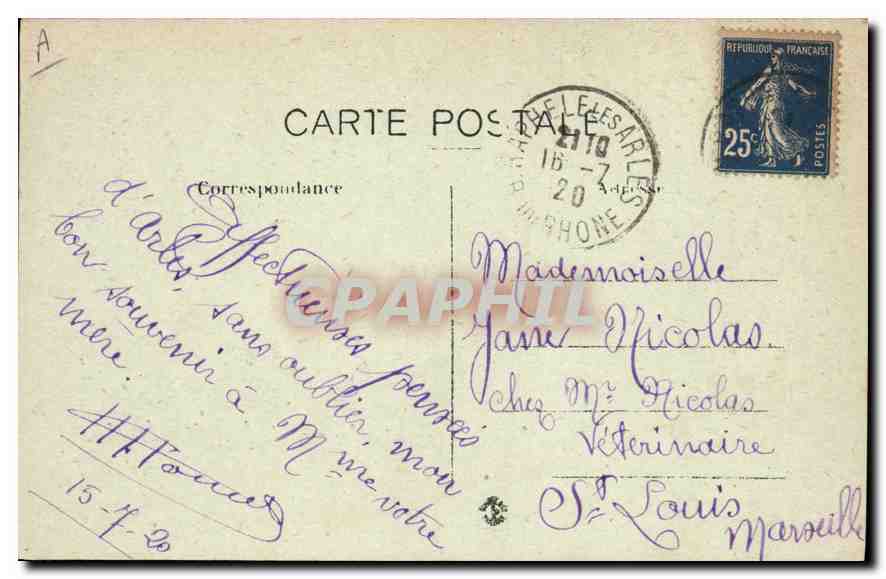 A
CARTE POSTALE
RAPHELE LES ARLES
21 10
16 - 7
20
B. DU RHONE
REPUBLIQUE FRANÇAISE
25c
POSTES
Correspondance
Adresse
Affectueuses pensées
d'Arles, sans oublier, mon
bon souvenir à Mme votre
mère.
15-7-20
Mademoiselle
Jane Nicolas.
chez Mr Nicolas
Véterinaire
St. Louis
Marseille
CPAPHIL